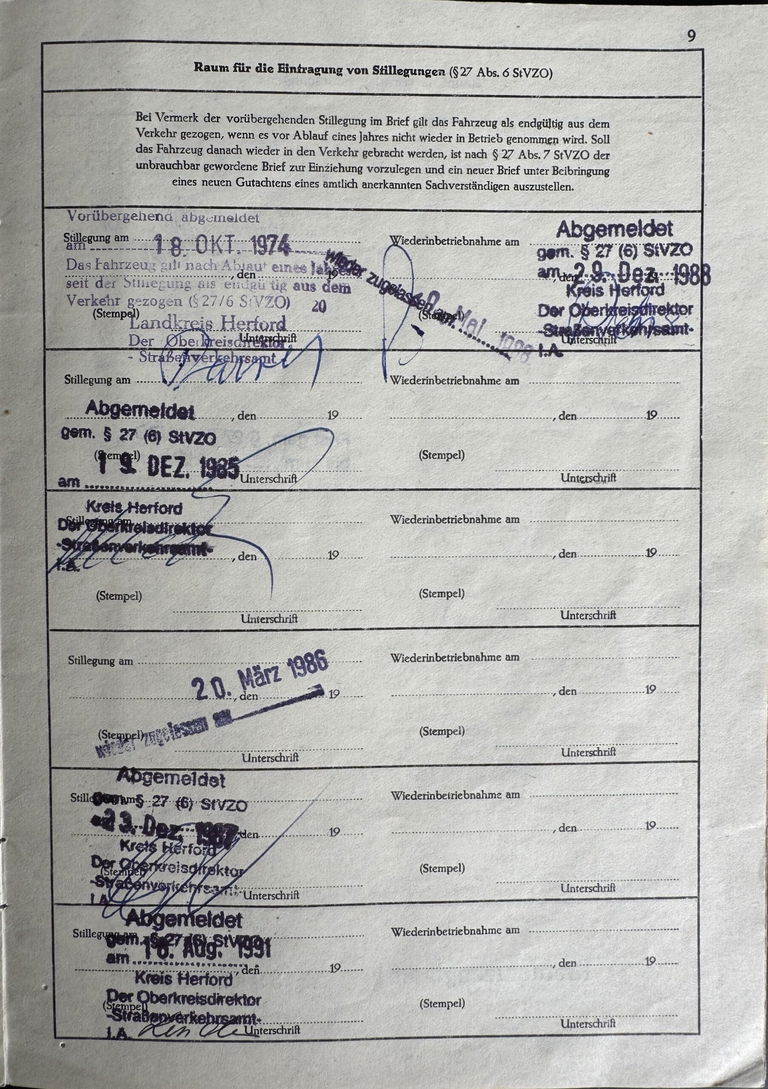 9
Raum für die Eintragung von Stillegungen (§ 27 Abs. 6 StVZO)
Bei Vermerk der vorübergehenden Stillegung im Brief gilt das Fahrzeug als endgültig aus dem
Verkehr gezogen, wenn es vor Ablauf eines Jahres nicht wieder in Betrieb genommen wird. Soll
das Fahrzeug danach wieder in den Verkehr gebracht werden, ist nach § 27 Abs. 7 StVZO der
unbrauchbar gewordene Brief zur Einziehung vorzulegen und ein neuer Brief unter Beibringung
eines neuen Gutachtens eines amtlich anerkannten Sachverständigen auszustellen.
Vorübergehend abgemeldet
Stillegung am
am 18. OKT. 1974
Das Fahrzeug gilt nach Ablauf eines Jahres
, den
seit der Stillegung als endgültig aus dem
Verkehr gezogen (§ 27/6 StVZO) 20
(Stempel)
Landkreis Herford
Der Oberkreisdirektor
Unterschrift
- Straßenverkehrsamt
wieder zugelassen am
Mai 1988
Wiederinbetriebnahme am
Abgemeldet
gem. § 27 (6) StVZO
am 29. Dez. 1988
, den
Kreis Herford
(Stempel)
Der Oberkreisdirektor
-Straßenverkehrsamt-
Unterschrift
I.A.
Stillegung am
Wiederinbetriebnahme am
Abgemeldet
, den 19
, den 19
gem. § 27 (6) StVZO
(Stempel)
(Stempel)
am 19. DEZ. 1985
Unterschrift
Unterschrift
Kreis Herford
Stillegung am
Wiederinbetriebnahme am
Der Oberkreisdirektor
-Straßenverkehrsamt-
, den 19
, den 19
I.A.
(Stempel)
(Stempel)
Unterschrift
Unterschrift
Stillegung am
Wiederinbetriebnahme am
20. März 1986
, den 19
, den 19
(Stempel)
wieder zugelassen am
(Stempel)
Unterschrift
Unterschrift
Abgemeldet
Stillegung am
Wiederinbetriebnahme am
gem. § 27 (6) StVZO
23. Dez. 1987
den 19
, den 19
Kreis Herford
Der Oberkreisdirektor
(Stempel)
(Stempel)
-Straßenverkehrsamt-
Unterschrift
Unterschrift
I.A.
Abgemeldet
Stillegung am
Wiederinbetriebnahme am
gem. § 27 (6) StVZO
am 16. Aug. 1991
, den 19
, den 19
Kreis Herford
Der Oberkreisdirektor
(Stempel)
(Stempel)
-Straßenverkehrsamt-
I.A.
Unterschrift
Unterschrift